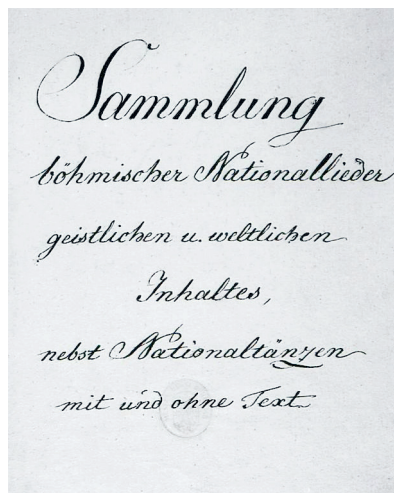 Sammlung
böhmischer Nationallieder
geistlichen u. weltlichen
Inhaltes,
nebst Nationaltänzen
mit und ohne Text